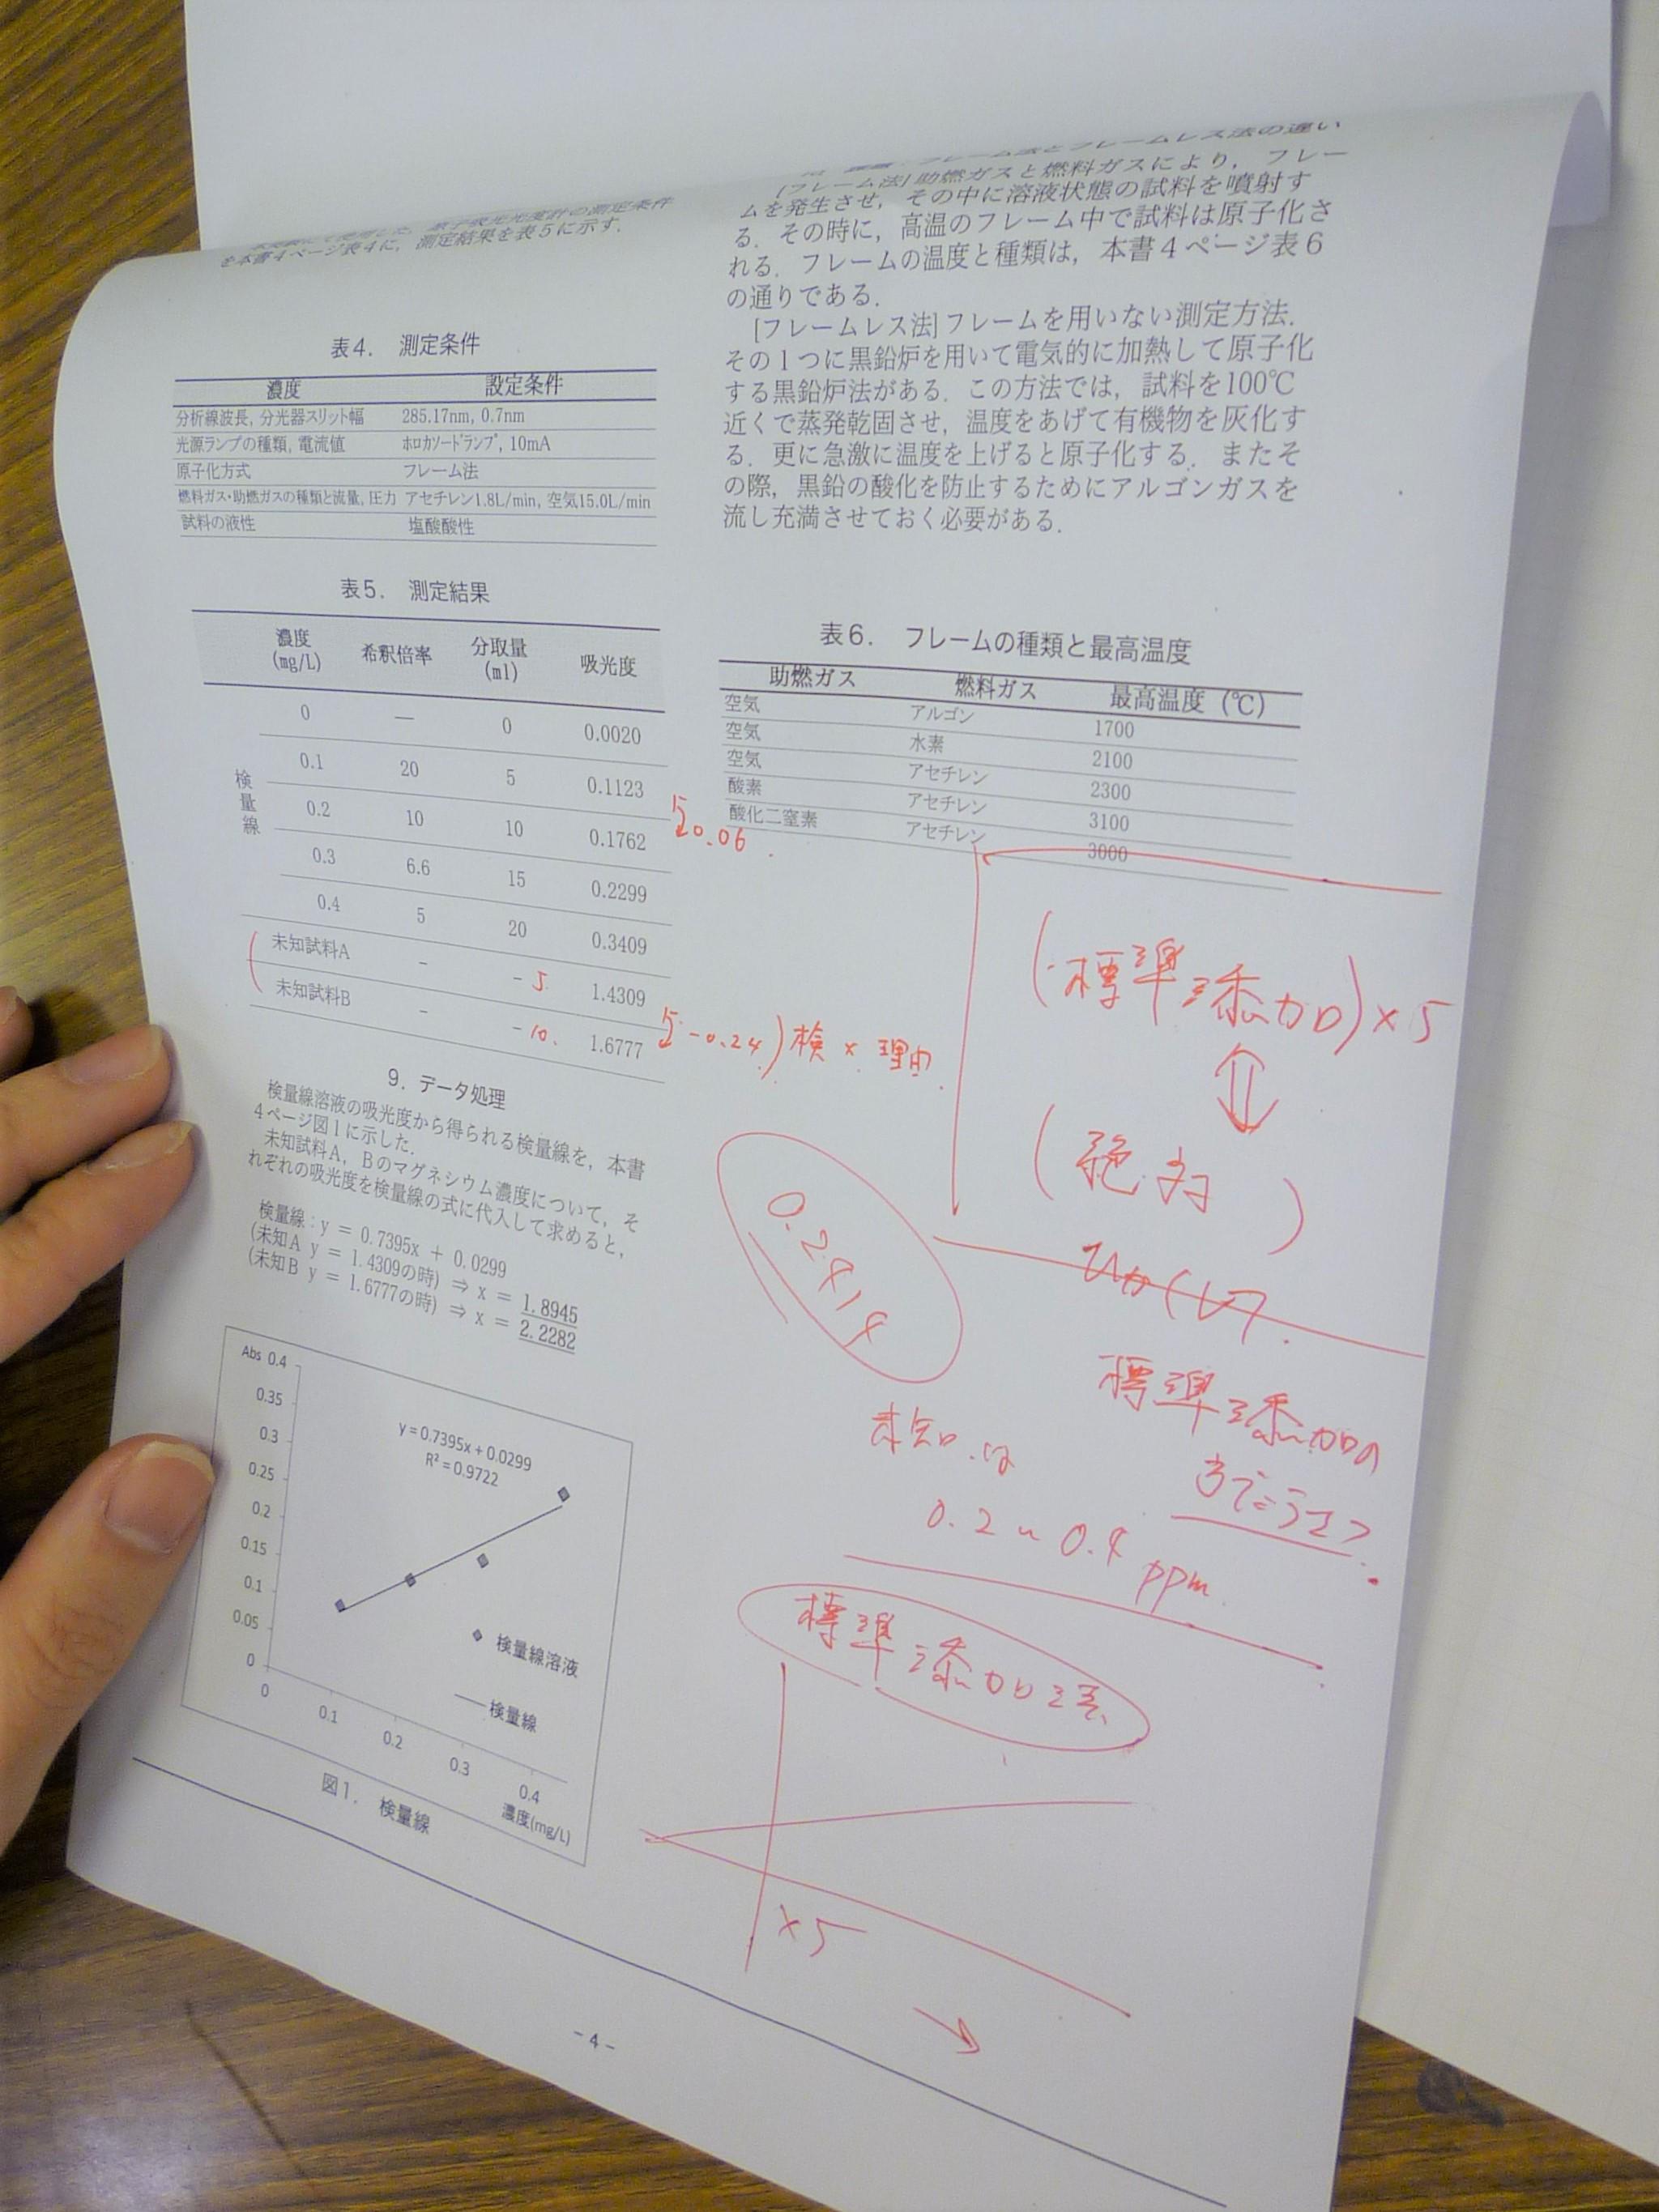 を本書4ページ表4に，測定結果を表5に示す．
表4．　測定条件
濃度　設定条件
分析線波長, 分光器スリット幅　285.17nm, 0.7nm
光源ランプの種類, 電流値　ﾎﾛｶｿｰﾄﾞﾗﾝﾌﾟ, 10mA
原子化方式　フレーム法
燃料ガス・助燃ガスの種類と流量, 圧力　アセチレン1.8L/min, 空気15.0L/min
試料の液性　塩酸酸性
表5．　測定結果
濃度(mg/L)　希釈倍率　分取量(ml)　吸光度
検量線
0　―　0　0.0020
0.1　20　5　0.1123
0.2　10　10　0.1762
0.06
0.3　6.6　15　0.2299
0.4　5　20　0.3409
未知試料A　-　- 5.　1.4309
未知試料B　-　- 10.　1.6777
-0.24) 検 × 理由.
9．データ処理
検量線溶液の吸光度から得られる検量線を，本書
4ページ図1に示した．
未知試料A，Bのマグネシウム濃度について，そ
れぞれの吸光度を検量線の式に代入して求めると，
検量線 : y = 0.7395x + 0.0299
(未知A y = 1.4309の時) ⇒ x = 1.8945
(未知B y = 1.6777の時) ⇒ x = 2.2282
Abs 0.4
0.35
0.3
0.25
0.2
0.15
0.1
0.05
0
y = 0.7395x + 0.0299
R² = 0.9722
検量線溶液
検量線
0　0.1　0.2　0.3　0.4
濃度(mg/L)
図1．　検量線
フレーム法とフレームレス法の違い
[フレーム法] 助燃ガスと燃料ガスにより，フレー
ムを発生させ，その中に溶液状態の試料を噴射す
る．その時に，高温のフレーム中で試料は原子化さ
れる．フレームの温度と種類は，本書4ページ表6
の通りである．
[フレームレス法] フレームを用いない測定方法．
その1つに黒鉛炉を用いて電気的に加熱して原子化
する黒鉛炉法がある．この方法では，試料を100℃
近くで蒸発乾固させ，温度をあげて有機物を灰化す
る．更に急激に温度を上げると原子化する．またそ
の際，黒鉛の酸化を防止するためにアルゴンガスを
流し充満させておく必要がある．
表6．　フレームの種類と最高温度
助燃ガス　燃料ガス　最高温度（℃）
空気　アルゴン　1700
空気　水素　2100
空気　アセチレン　2300
酸素　アセチレン　3100
酸化二窒素　アセチレン　3000
(標準添加) × 5
(絶対)
標準添加の
未知は
0.2 ~ 0.4 ppm
標準添加法
×5
- 4 -